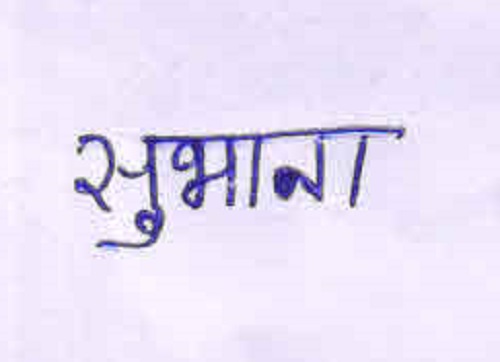 सुभाना